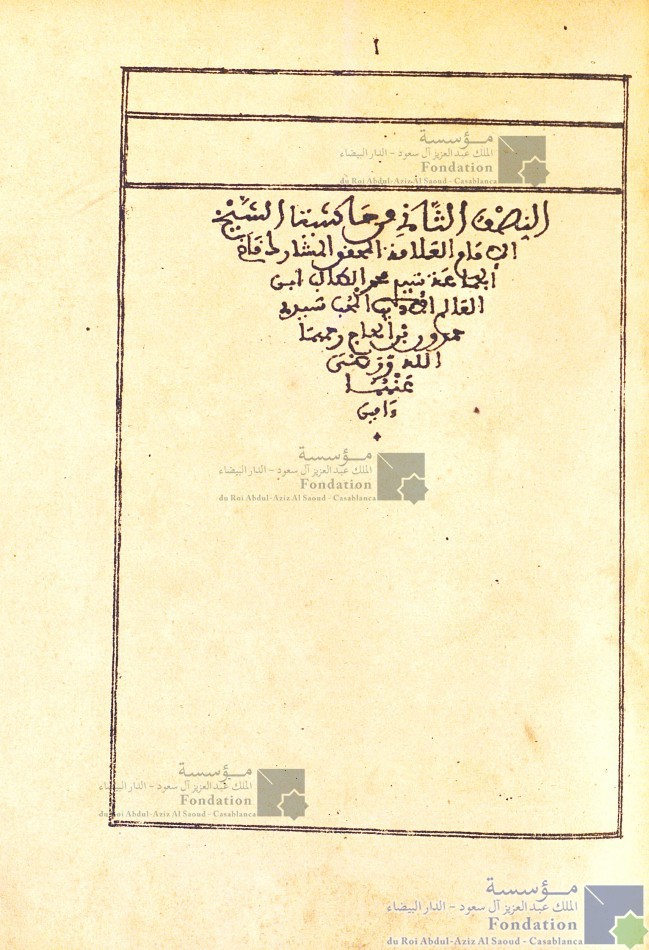 ١
النصف الثاني من حاشية الشيخ
الامام العلامة المحقق المشارك قاضي
الجماعة سيدي محمد الطالب ابن
العالم الأديب المحب سيدي
حمدون بن الحاج رحمهما
الله ورضي
عنهما
ءامين
مؤسسة
الملك عبد العزيز آل سعود - الدار البيضاء
Fondation
du Roi Abdul-Aziz Al Saoud - Casablanca
مؤسسة
الملك عبد العزيز آل سعود - الدار البيضاء
Fondation
du Roi Abdul-Aziz Al Saoud - Casablanca
مؤسسة
الملك عبد العزيز آل سعود - الدار البيضاء
Fondation
du Roi Abdul-Aziz Al Saoud - Casablanca
مؤسسة
الملك عبد العزيز آل سعود - الدار البيضاء
Fondation
du Roi Abdul-Aziz Al Saoud - Casablanca